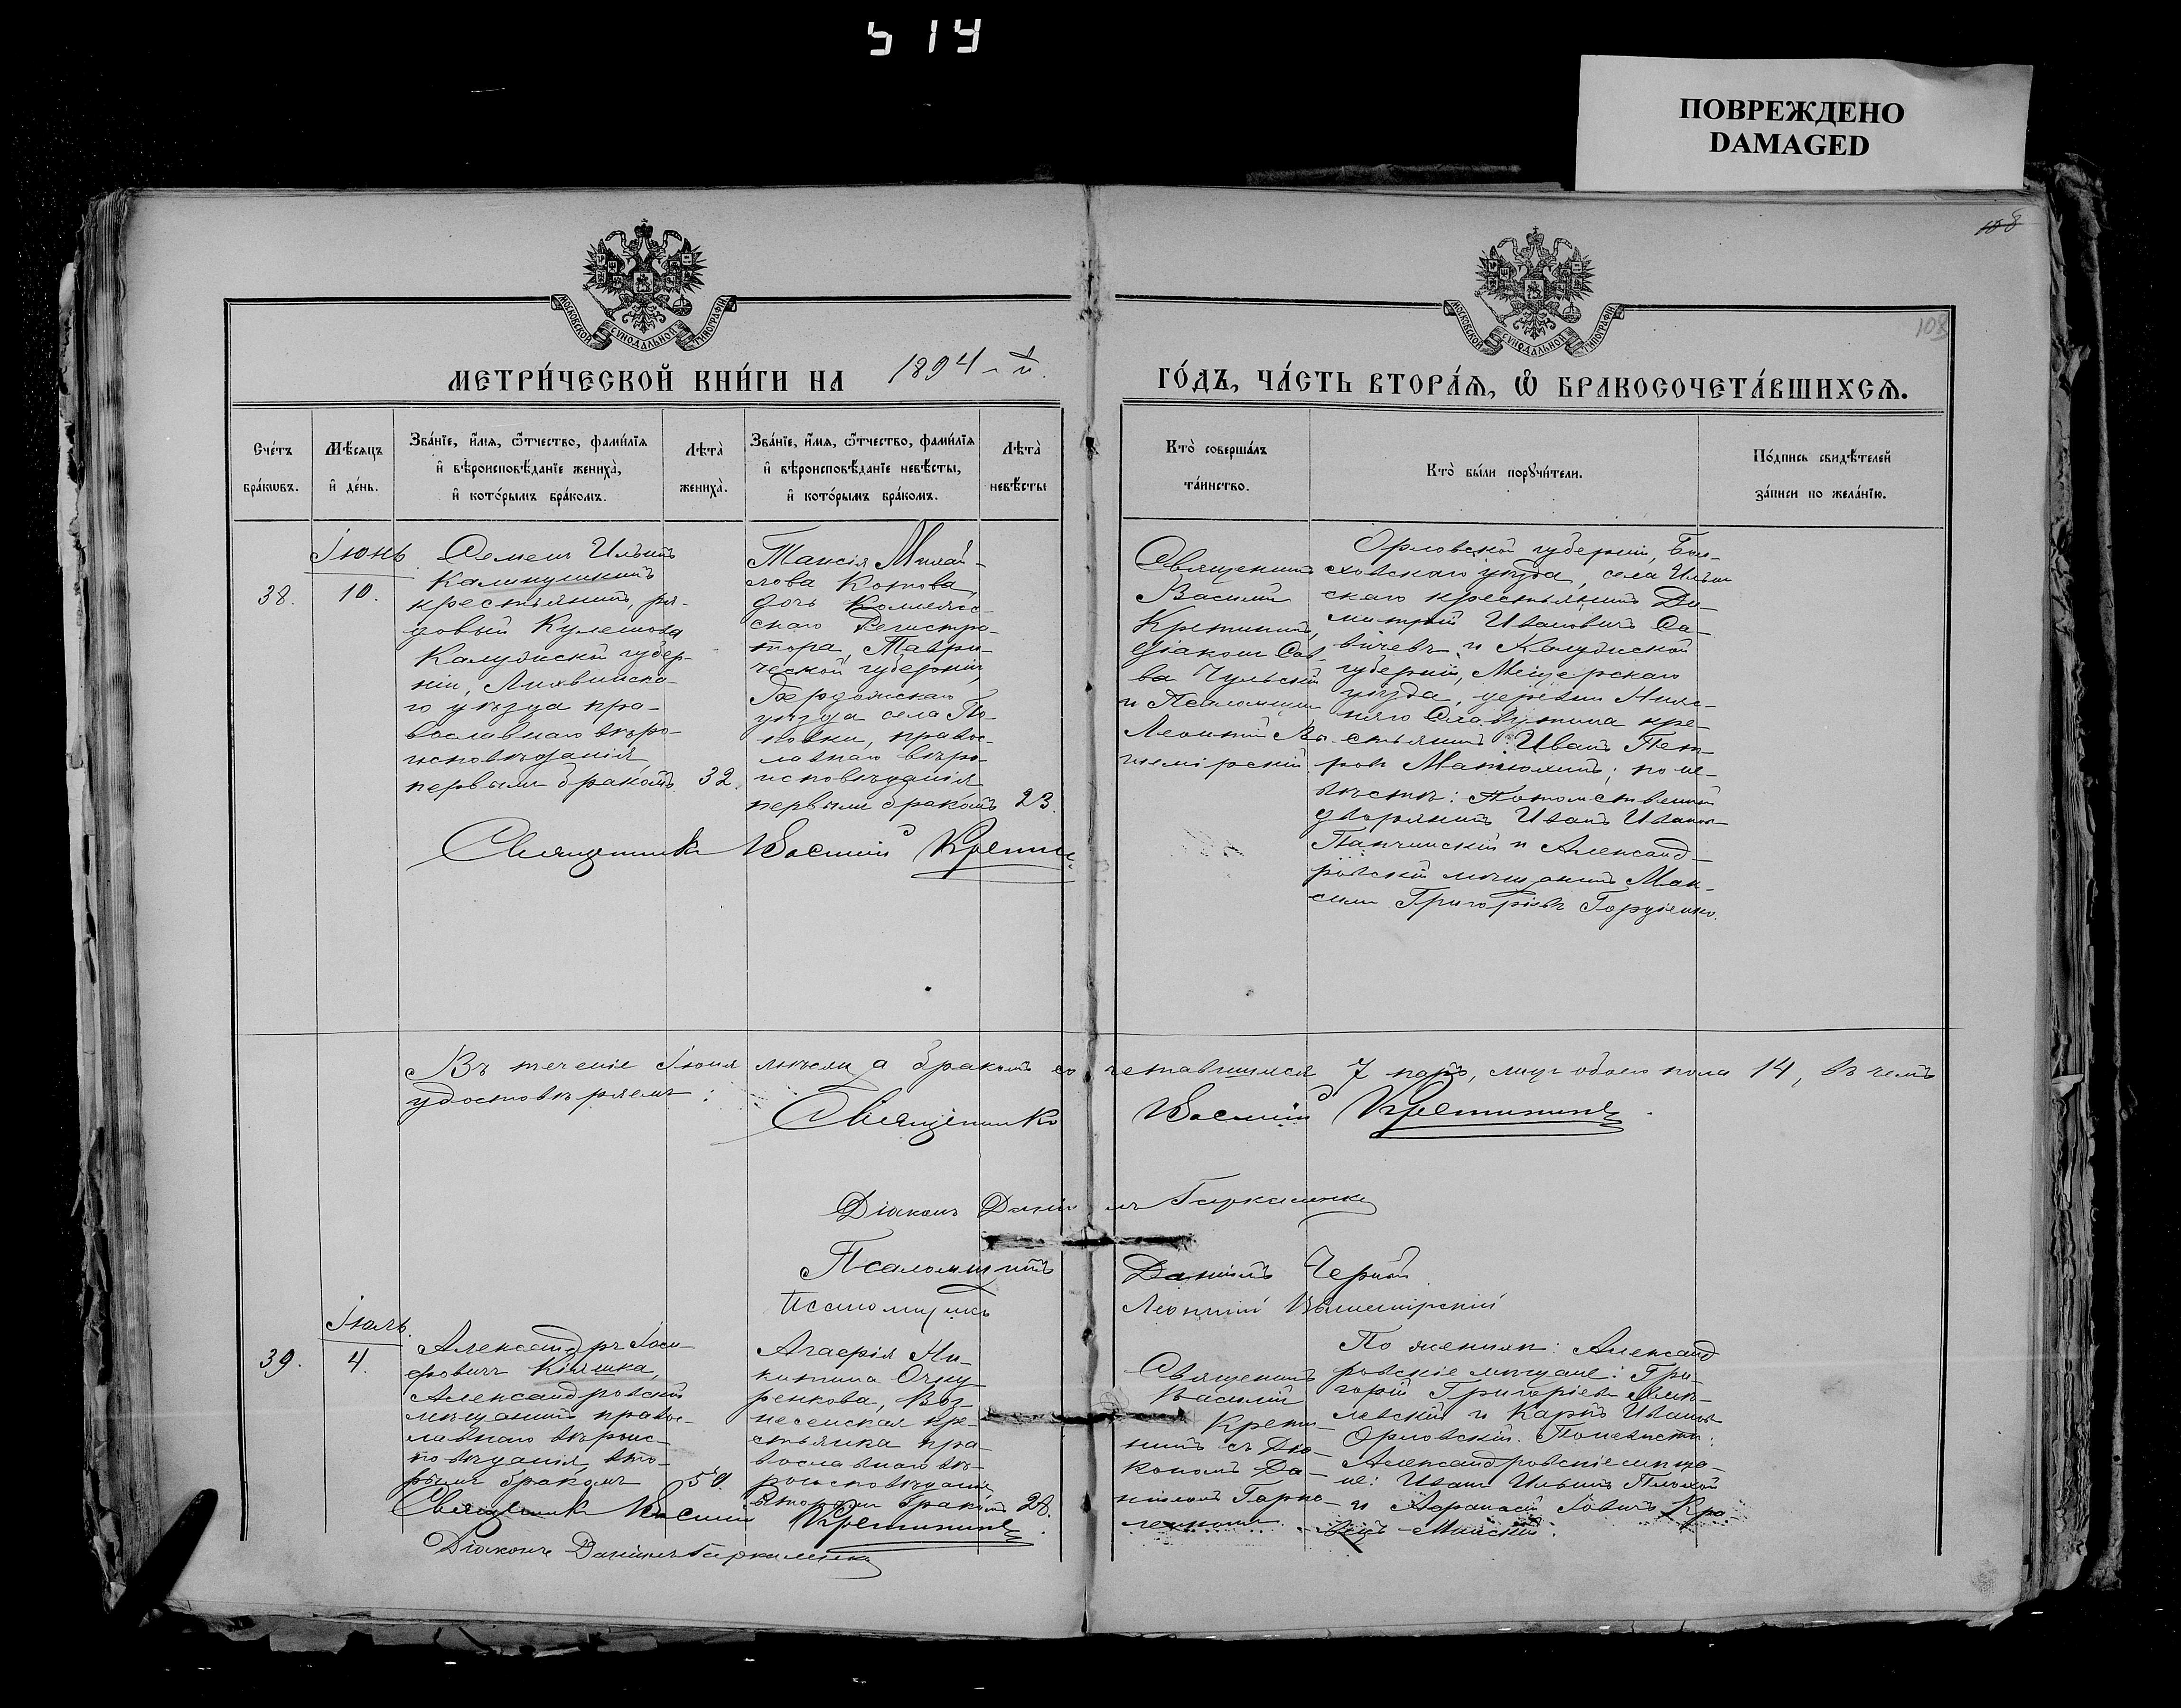 514
ПОВРЕЖДЕНО
DAMAGED
108
108
МОСКОВСКОЙ СѴНОДАЛЬНОЙ ТИПОГРАФІИ
МОСКОВСКОЙ СѴНОДАЛЬНОЙ ТИПОГРАФІИ
МЕТРИ́ЧЕСКОЙ КНИ́ГИ НА 1894-й
ГО́ДЪ, ЧА́СТЬ ВТОРА́Ѧ, Ѽ БРАКОСОЧЕТА́ВШИХСѦ.
Сче́тъ
бра́кѡвъ.
Мѣ́сѧцъ
и҆ де́нь.
Зва́нїе, и҆́мѧ, ѻ҆́тчество, фами́лїѧ
и҆ вѣроисповѣ́данїе жениха̀,
и҆ кото́рымъ бра́комъ.
Лѣта̀
жениха̀.
Зва́нїе, и҆́мѧ, ѻ҆́тчество, фами́лїѧ
и҆ вѣроисповѣ́данїе невѣ́сты,
и҆ кото́рымъ бра́комъ.
Лѣта̀
невѣ́сты
Кто̀ соверша́лъ
та́инство.
Кто̀ бы́ли порꙋчи́тели.
По́дпись свидѣ́телей
за́писи по жела́нїю.
38.
Іюнь
10.
Семенъ Ильинъ
Калинушкинъ
крестьянинъ, ря-
довый Кулешова
Калужской губер-
ніи, Лихвинска-
го уѣзда пра-
вославнаго вѣро-
исповѣданія
первымъ бракомъ 32.
Таисія Михай-
лова Котова,
дочь Коллежс-
скаго Регистра-
тора, Таври-
ческой губерніи,
Бердянскаго
уѣзда села По-
повки, правос-
лавнаго вѣро-
исповѣданія
первымъ бракомъ 23.
Священникъ
Василій
Кретининъ,
діаконъ Сав-
ва Чульскій
и Псаломщикъ
Леонтій Вы-
шемірскій.
Орловской губерніи, Бол-
ховскаго уѣзда, села Ильин
скаго крестьянинъ Ди-
митрій Ивановичъ Са-
вичевъ и Калужской
губерніи, Мещерскаго
уѣзда, деревни Ниж-
няго кре-
стьянинъ Иванъ Пет-
ровъ Матюхинъ; по не-
вѣстѣ: Потомственный
дворянинъ Иванъ Иванов
Папчинскій и Александ-
ровскій мѣщанинъ Мак-
симъ Григорьевъ Гордіенко.
Священникъ Василій Кретин.
Въ теченіе Іюня мѣсяца бракомъ сочетавшихся 7 паръ, лицъ обоего пола 14, въ чемъ
удостовѣряемъ:
Священникъ Василій Кретининъ.
Діаконъ Даніилъ Гаркаленко
Псаломщикъ Даніилъ Черный.
Псаломщикъ Леонтій Вышемірскій
39.
Іюль.
4.
Александръ Іоси-
фовичъ Кіяшка,
Александровскій
мѣщанинъ правос-
лавнаго вѣроис-
повѣданія, вто-
рымъ бракомъ 50.
Агафія Ни-
китина Очку-
ренкова, Воз-
несенская кре-
стьянка пра-
вославнаго вѣ-
роисповѣданія
вторымъ бракомъ 28.
Священникъ
Василій
Крети-
нинъ съ Діа-
кономъ Да-
ніиломъ Гарка-
ленкомъ.
По женихѣ: Александ
ровскіе мѣщане: Гри-
горій Григорьевъ
и Карпъ Иванов
Орловскій. По невѣстѣ:
Александровскіе мѣща-
не: Иванъ Ильинъ Плохой
и Афанасій Іовичъ Кра-
Священникъ Василій Кретининъ
Діаконъ Даніилъ Гаркаленко